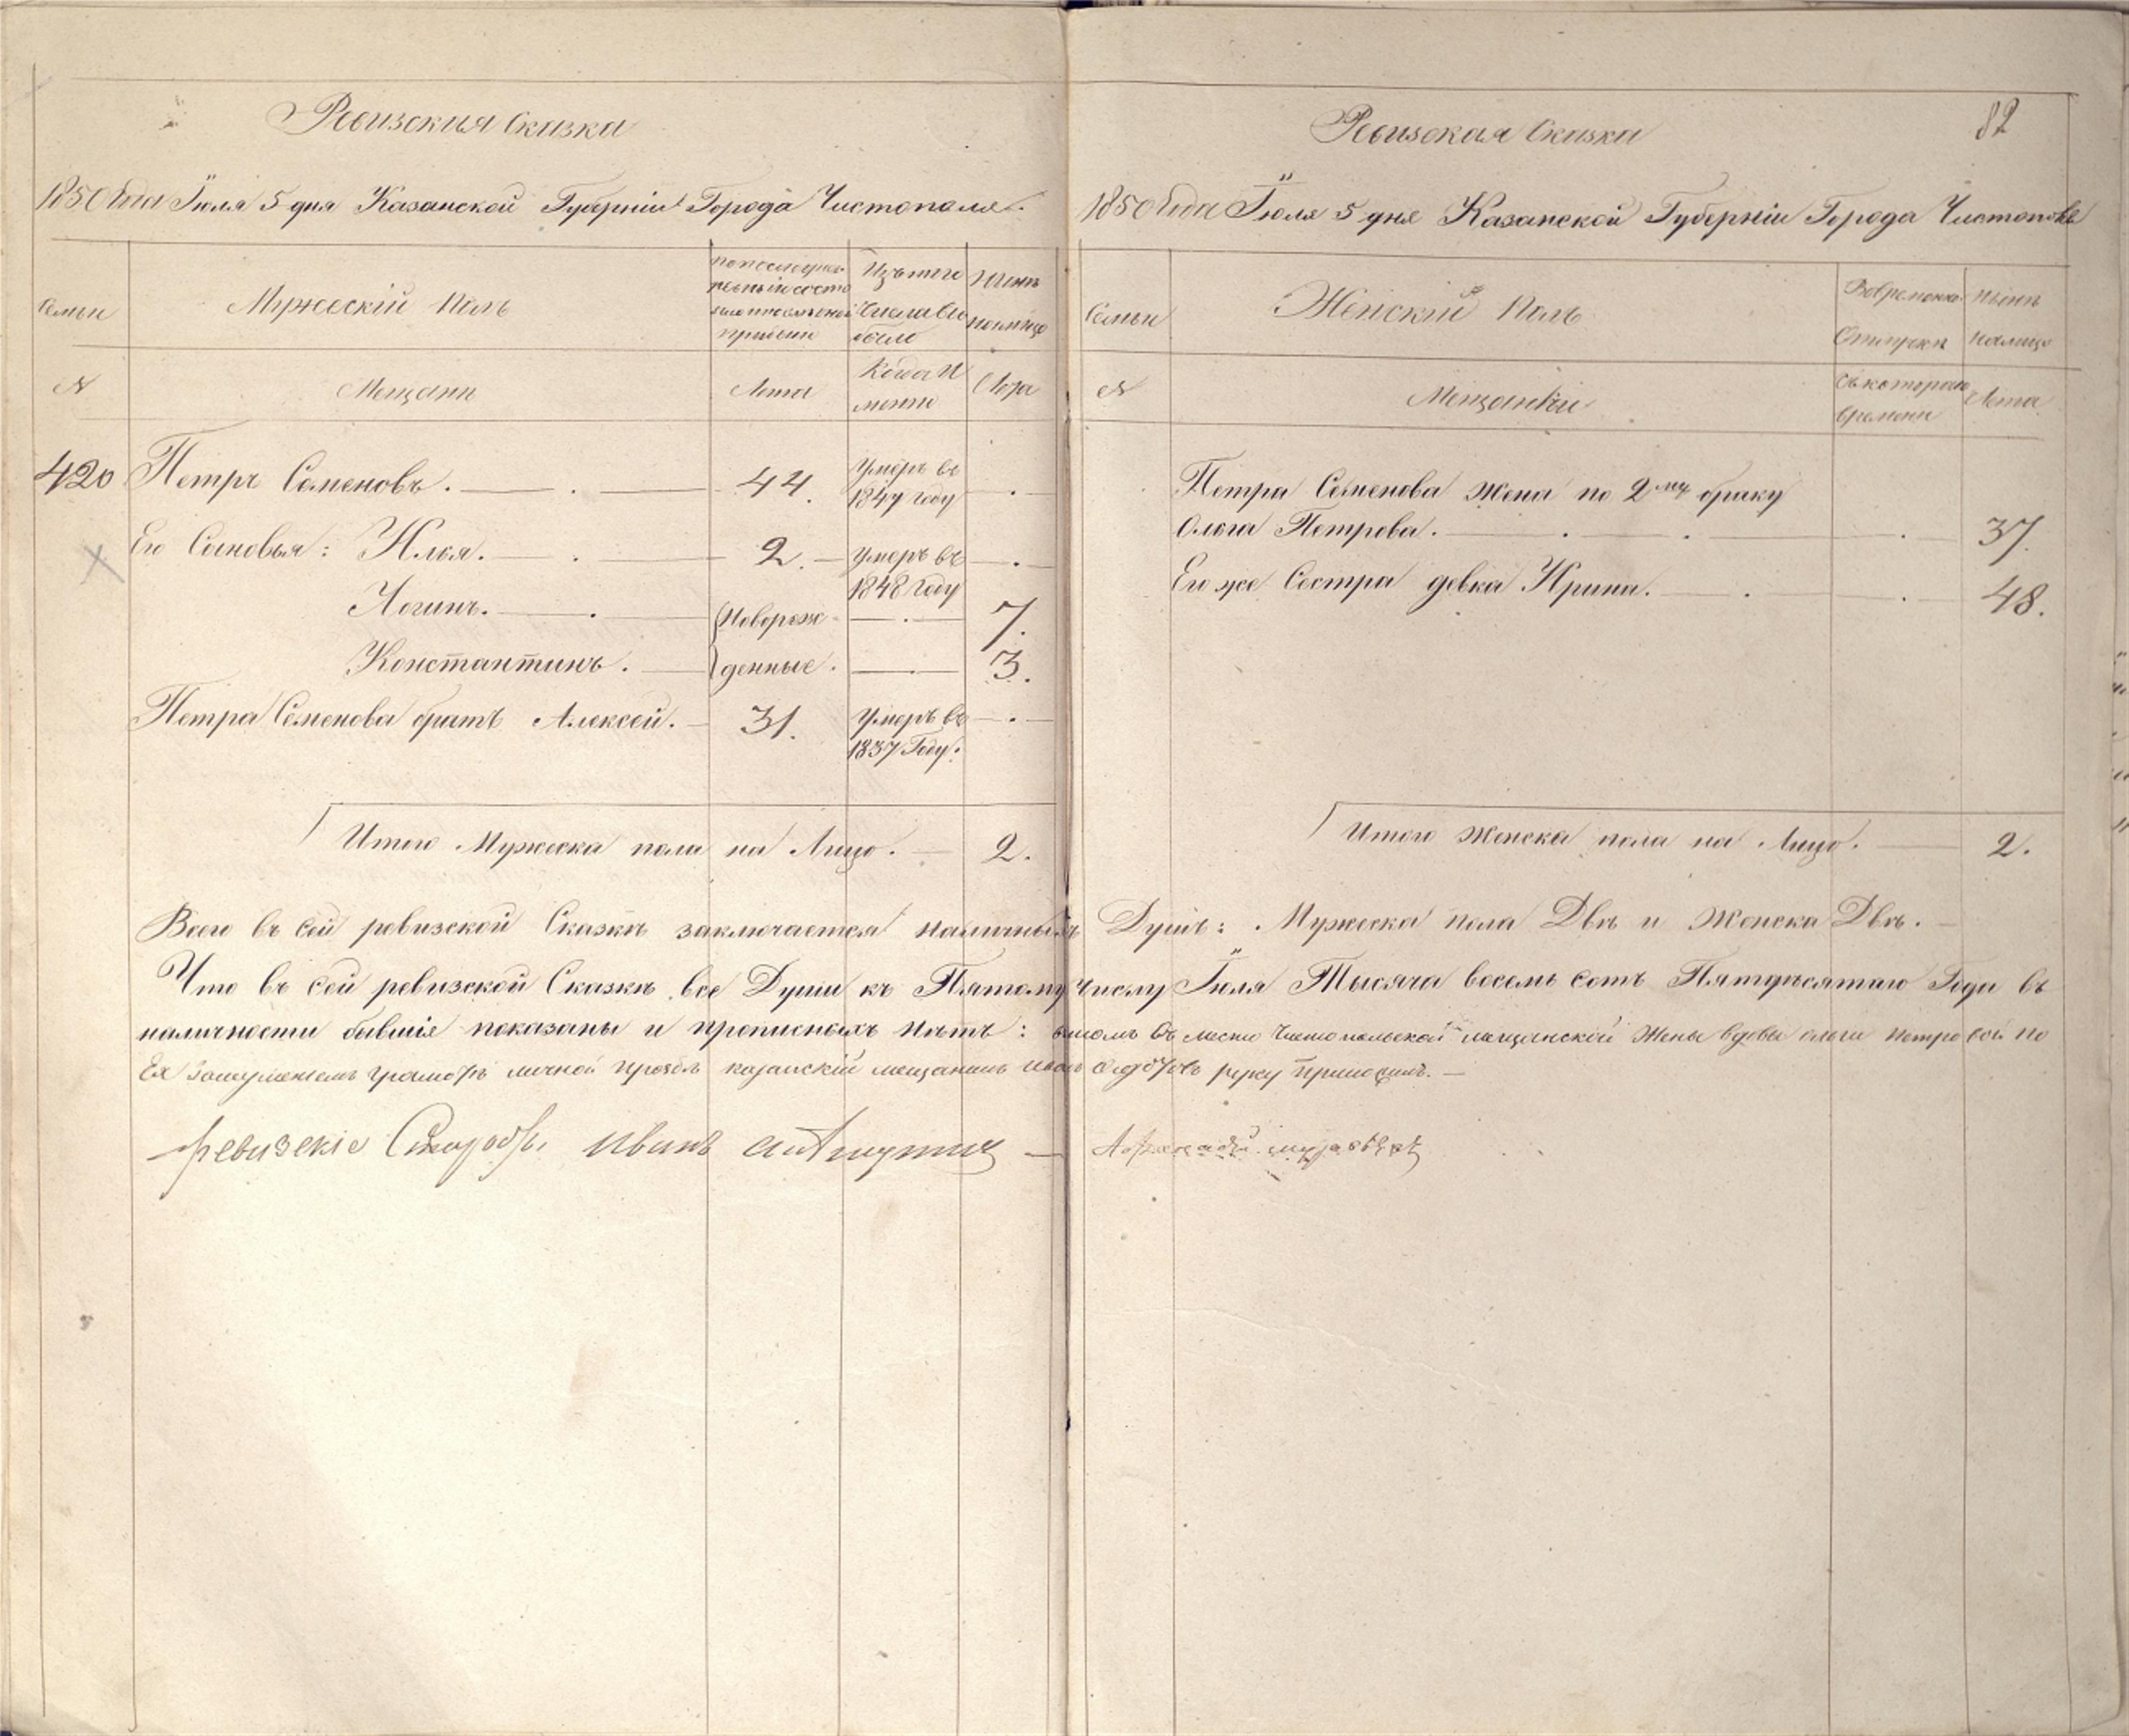 Ревизская Сказка
1850 Года Іюля 5 дня Казанской Губерніи Города Чистополя.
Семьи
Мужескій Полъ
По последней ревизіи состояло и после оной прибыло
Изъ того числа выбыло
Ныне на лицо
№
Мещане
Лета
Когда именно
Лета
420 Петръ Семеновъ. 44. Умеръ въ
1847 году
Его Сыновья: Илья. 2. Умеръ въ
1848 году
Логинъ. Новорож- 7.
Константинъ. денные. 3.
Петра Семенова братъ Алексей. 31. Умеръ въ
1837 Году.
Итого Мужеска пола на Лицо. 2.
82
Ревизская Сказка
1850 Года Іюля 5 дня Казанской Губерніи Города Чистополя
Семьи
Женскій Полъ
Во временной отлучке
Ныне на лицо
№
Мещанки
Съ котораго времени
Лета
Петра Семенова жена по 2му браку
Ольга Петрова. 37.
Его же Сестра девка Ирина. 48.
Итого Женска пола на Лицо. 2.
Всего въ сей ревизской Сказкѣ заключается наличныхъ Душъ: Мужеска пола Двѣ и Женска Двѣ.
Что въ сей ревизской Сказкѣ все Души къ Пятому числу Іюля Тысяча восемь сотъ Пятдѣсятаго Года въ
наличности бывшіе показаны и прописныхъ нѣтъ: въ томъ въ место Чистопольской мещанской Жены вдовы ольги петровой по
Ея грамотѣ личной прозбѣ казанскій мещанинъ руку приложилъ.
ревизскіе Иванъ